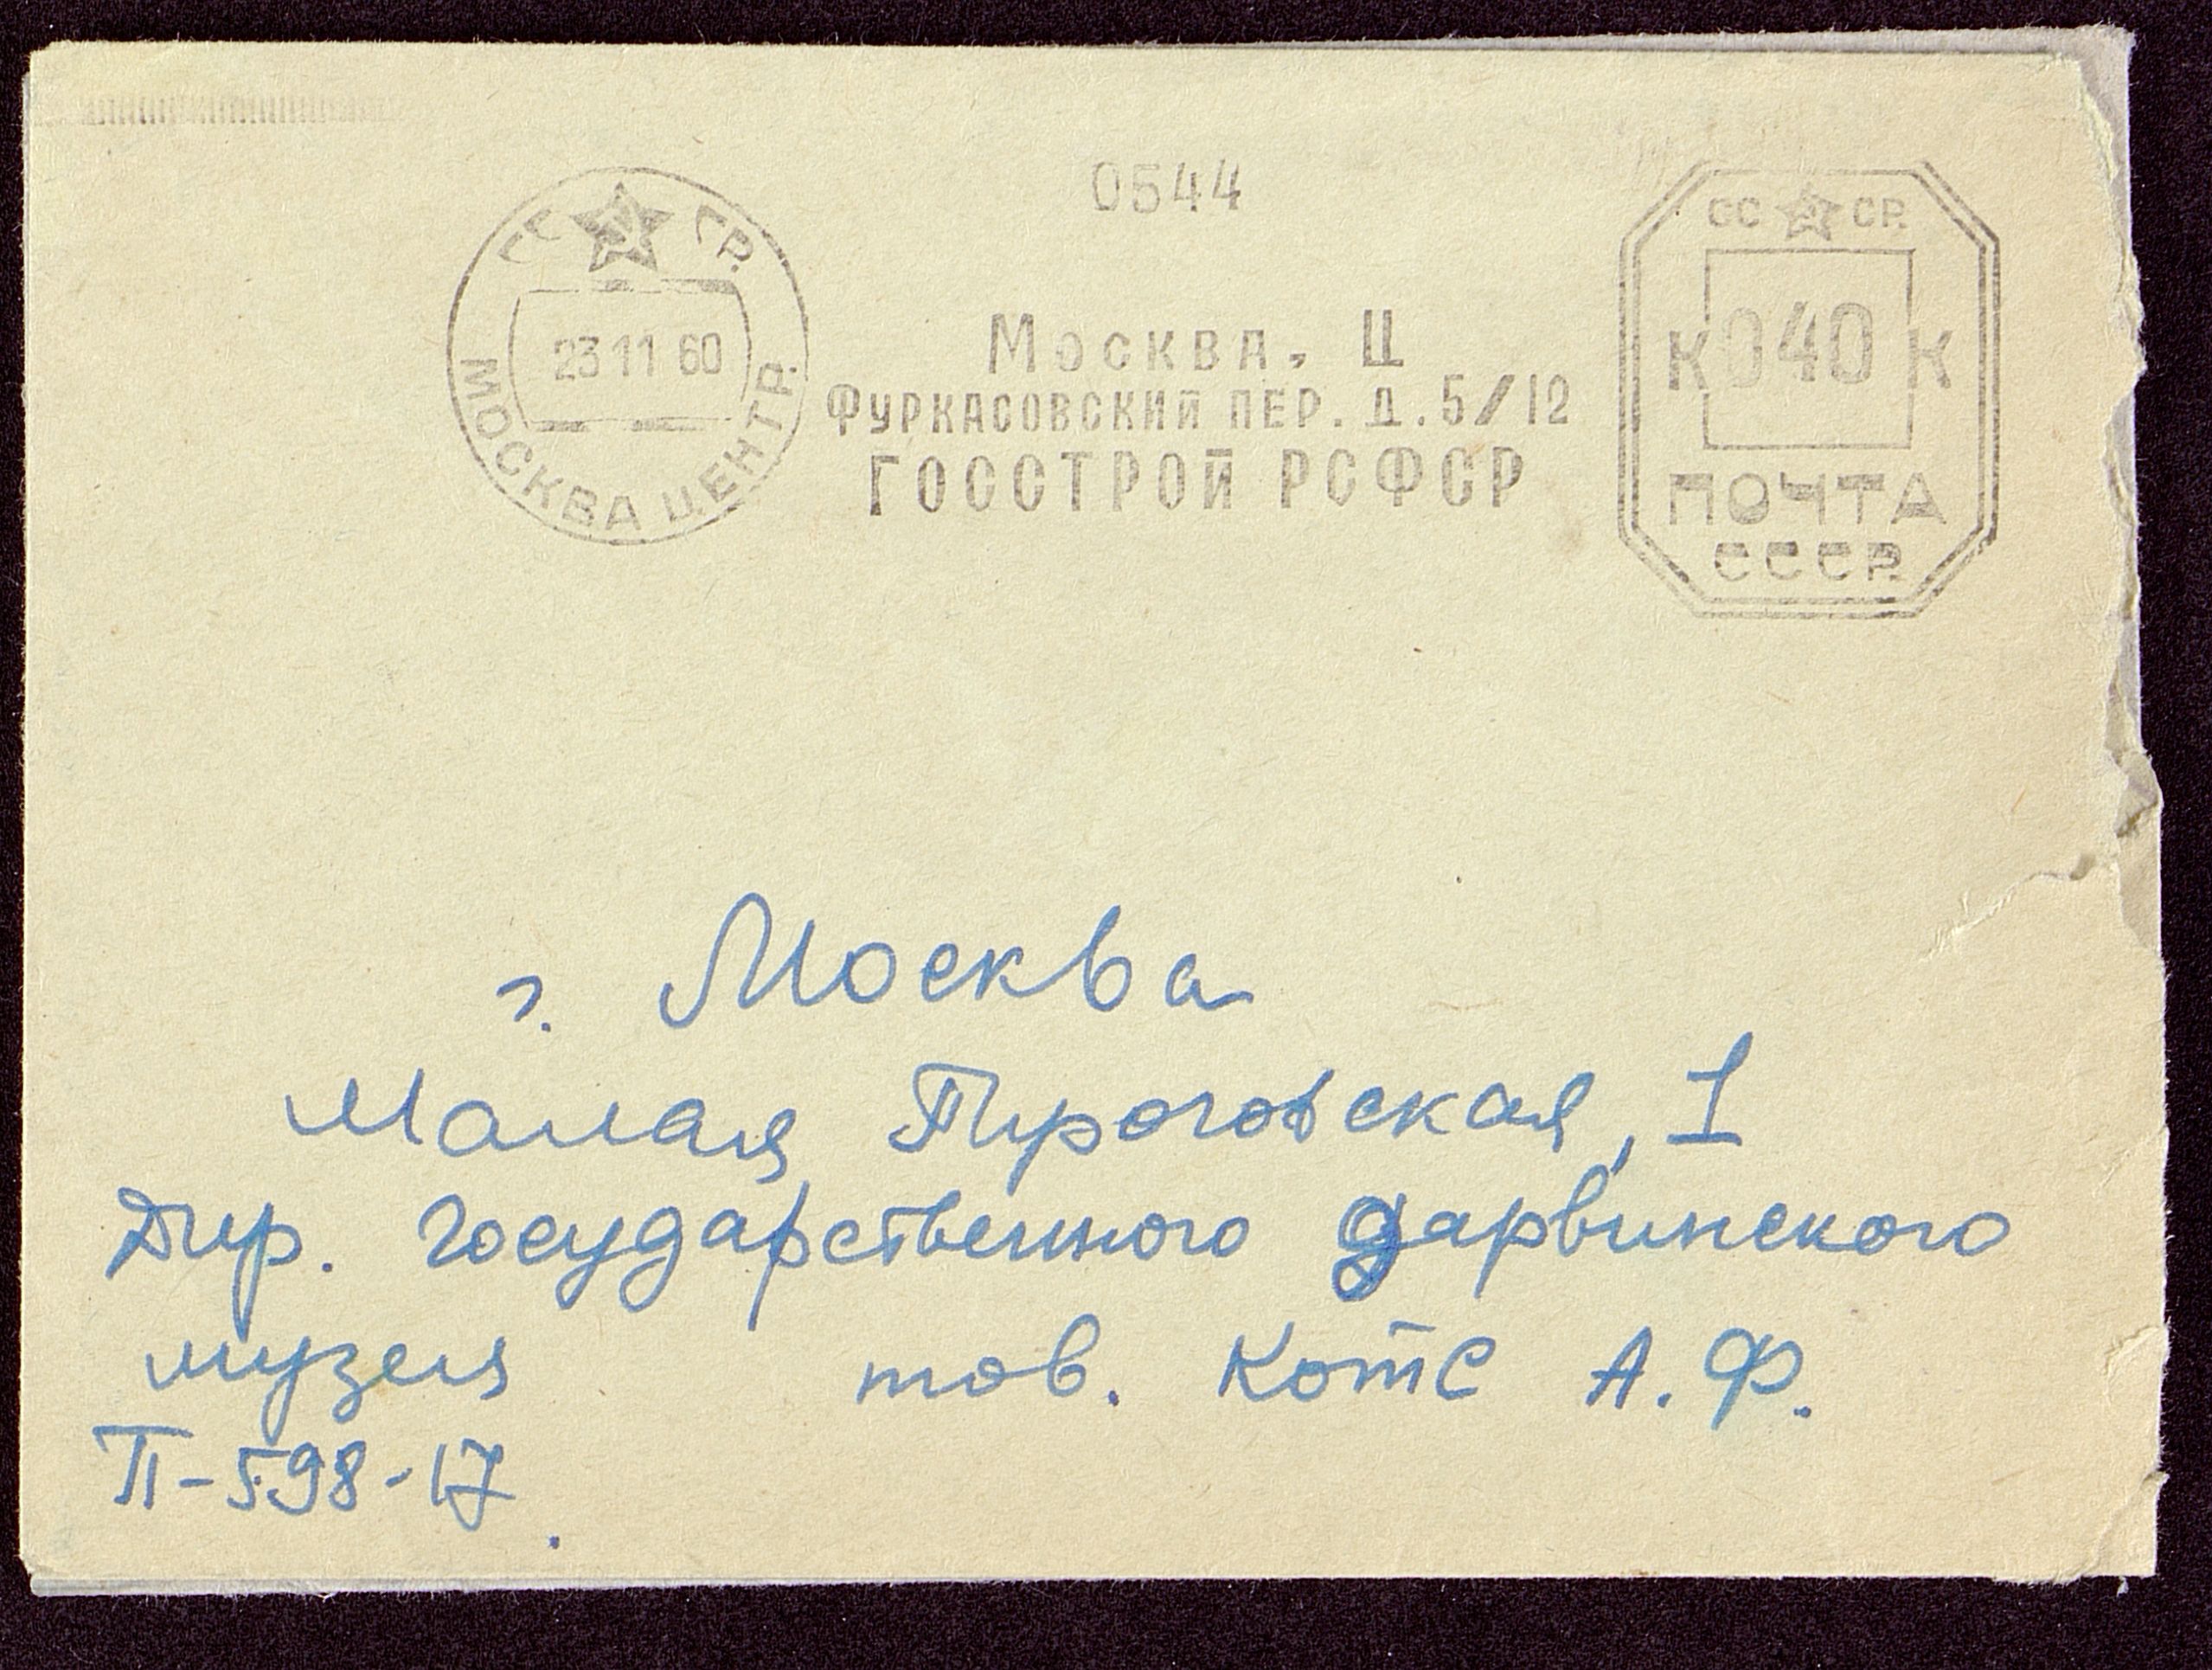 0544
СС СР.
23 11 60
МОСКВА ЦЕНТР.
Москва, Ц
Фуркасовский пер. д. 5/12
ГОССТРОЙ РСФСР
СС СР.
К 040 К
ПОЧТА
СССР.
г. Москва
Малая Пироговская, 1
Дир. государственного дарвинского
музея тов. Котс А. Ф.
П-598-17.